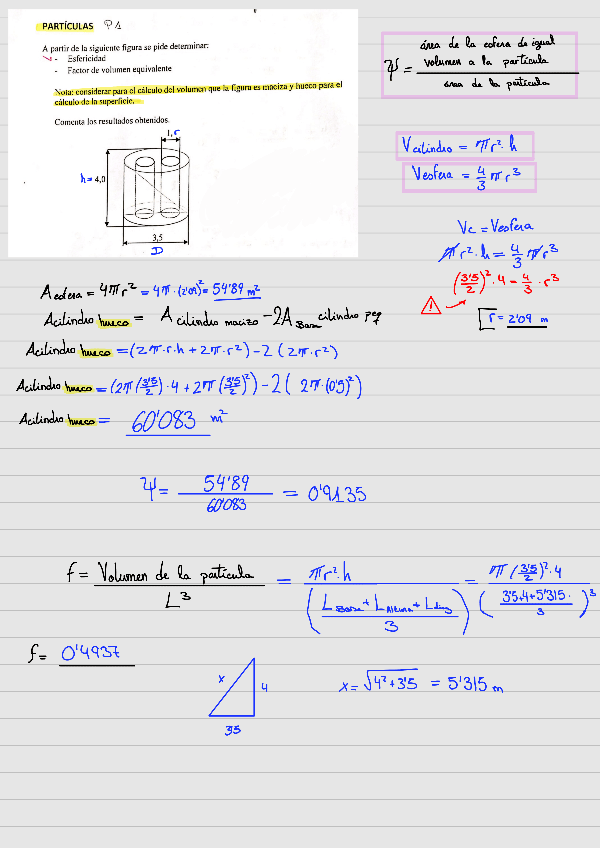 PARTÍCULAS P1
A partir de la siguiente figura se pide determinar:
- Esfericidad
- Factor de volumen equivalente
Nota: considerar para el cálculo del volumen que la figura es maciza y hueco para el
cálculo de la superficie.
Comenta los resultados obtenidos.
1,r
h = 4,0
3,5
D
Ψ = área de la esfera de igual
volumen a la partícula
área de la partícula
Vcilindro = πr²·h
Vesfera = 4/3 πr³
Vc = Vesfera
πr²·h = 4/3 πr³
(3'5/2)²·4 = 4/3·r³
r = 2'09 m
A esfera = 4πr² = 4π·(2'09)² = 54'89 m²
Acilindro hueco = A cilindro macizo - 2A Base cilindro peq
Acilindro hueco = (2π·r·h + 2π·r²) - 2(2π·r²)
Acilindro hueco = (2π(3'5/2)·4 + 2π(3'5/2)²) - 2(2π·(0'5)²)
Acilindro hueco = 60'083 m²
Ψ = 54'89 / 60'083 = 0'9135
f = Volumen de la partícula / L³ = πr²·h / ((L Base + L Altura + L diag) / 3) = π(3'5/2)²·4 / ((3'5+4+5'315) / 3)³
f = 0'4937
x
4
3'5
x = √4²+3'5 = 5'315 m